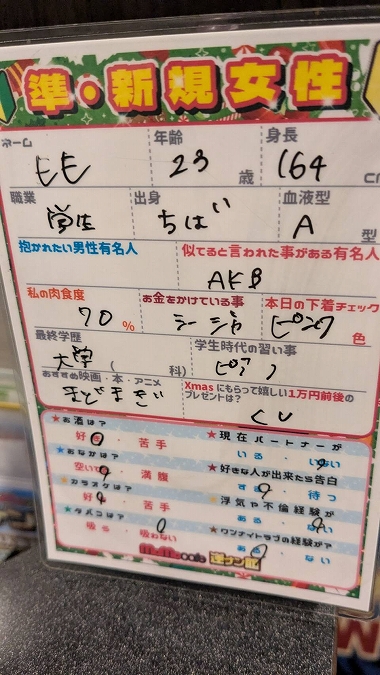 準・新規女性
ネーム 年齢 身長
モモ 23歳 164cm
職業 出身 血液型
学生 ちば A型
抱かれたい男性有名人 似てると言われた事がある有名人
AKB
私の肉食度 お金をかけている事 本日の下着チェック
70% ピンク色
最終学歴 学生時代の習い事
大学(科) ピアノ
おすすめ映画・本・アニメ Xmasにもらって嬉しい1万円前後のプレゼントは?
まどまぎ
★お酒は? ★現在パートナーが
好き・苦手 いる・いない
★おなかは? ★好きな人が出来たら告白
空いてる・満腹 する・待つ
★カラオケは? ★浮気や不倫経験が
好き・苦手 ある・ない
★タバコは? ★ワンナイトラブの経験が?
吸う・吸わない ある・ない
MoMo cafe 逆ナン館